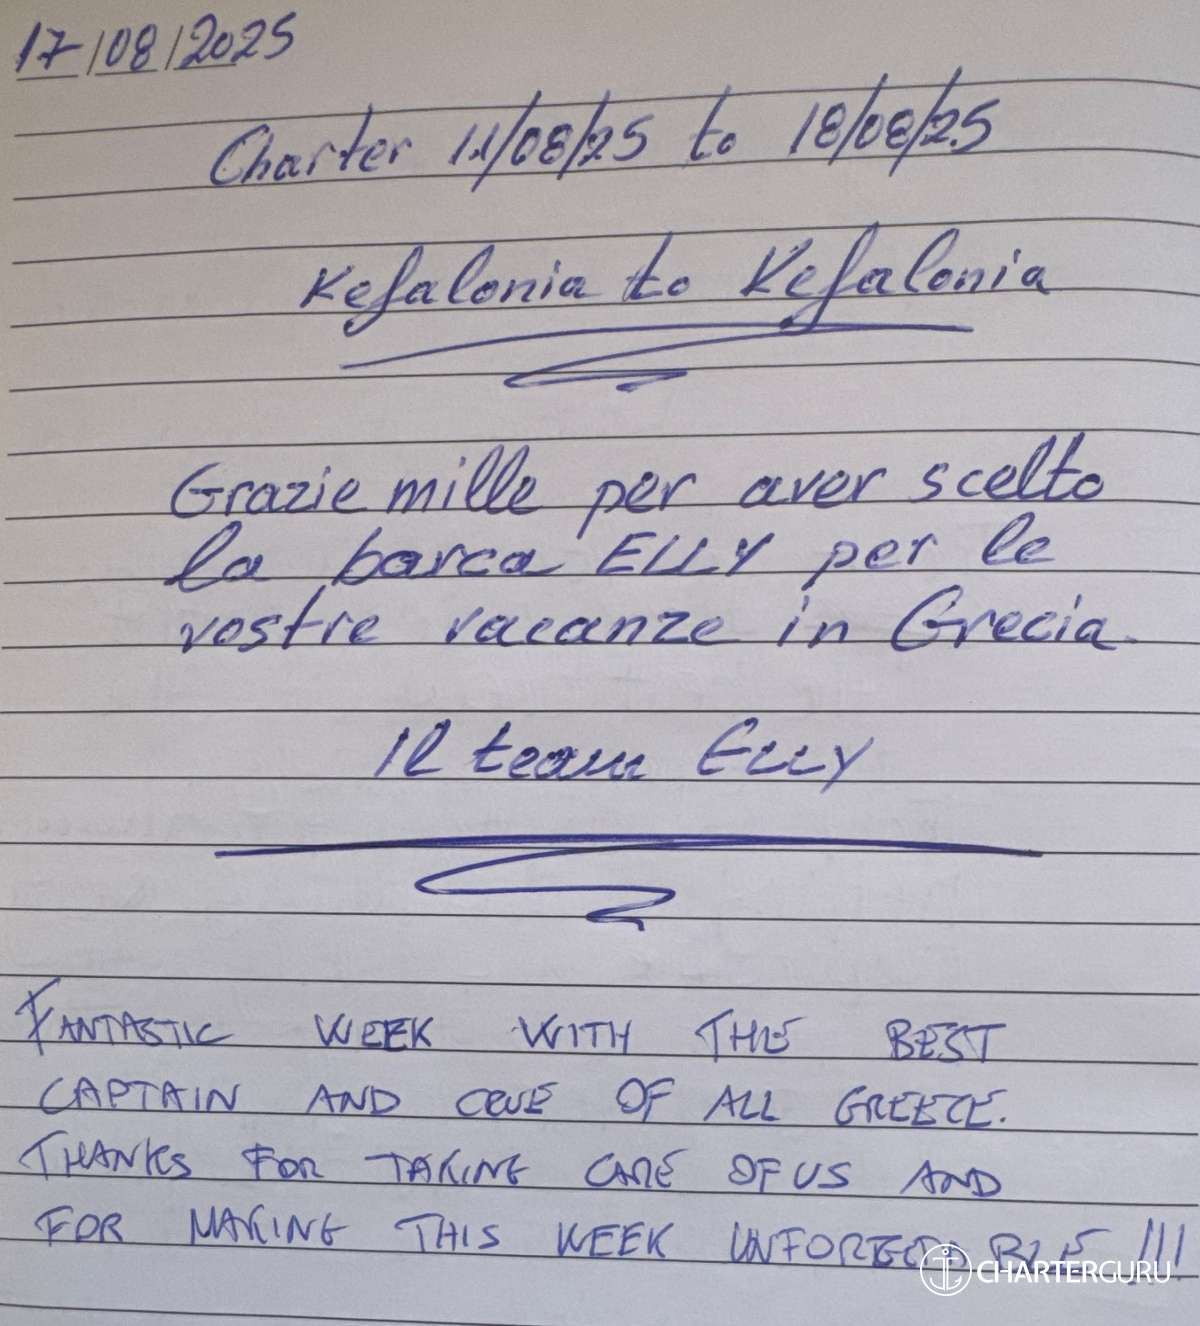 17/08/2025
Charter 11/08/25 to 18/08/25
Kefalonia to Kefalonia
Grazie mille per aver scelto
la barca ELLY per le
vostre vacanze in Grecia.
Il team Elly
FANTASTIC WEEK WITH THE BEST
CAPTAIN AND CRUE OF ALL GREECE.
THANKS FOR TAKING CARE OF US AND
FOR MAKING THIS WEEK !!!
CHARTERGURU